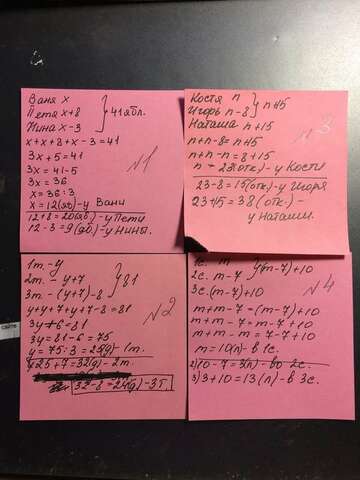 Ваня x
Петя x+8
Нина x-3
} 41 ябл.
x+x+8+x-3=41
3x+5=41
3x=41-5
3x=36
x=36:3
x=12(яб)-у Вани
12+8=20(яб)-у Пети
12-3=9(яб)-у Нины.
N1
Костя n
Игорь n-8
} n+15
Наташа n+15
n+n-8=n+15
n+n-n=8+15
n=23(отк.)-у Кости
23-8=15(отк)-у Игоря
23+15=38(отк.)-
у Наташи.
N3
1т-y
2т-y+7
3т-(y+7)-8
} 81
y+y+7+y+7-8=81
3y+6=81
3y=81-6=75
y=75:3=25(д)-1т.
25+7=32(д)-2т.
32-8=24(д)-3т.
N2
1с. m
2с. m-7
} (m-7)+10
3с.(m-7)+10
m+m-7=(m-7)+10
m+m-7=m-7+10
m+m-m=7-7+10
m=10(л)-в 1с.
2)10-7=3(л)-во 2с.
3)3+10=13(л)-в 3с.
N4